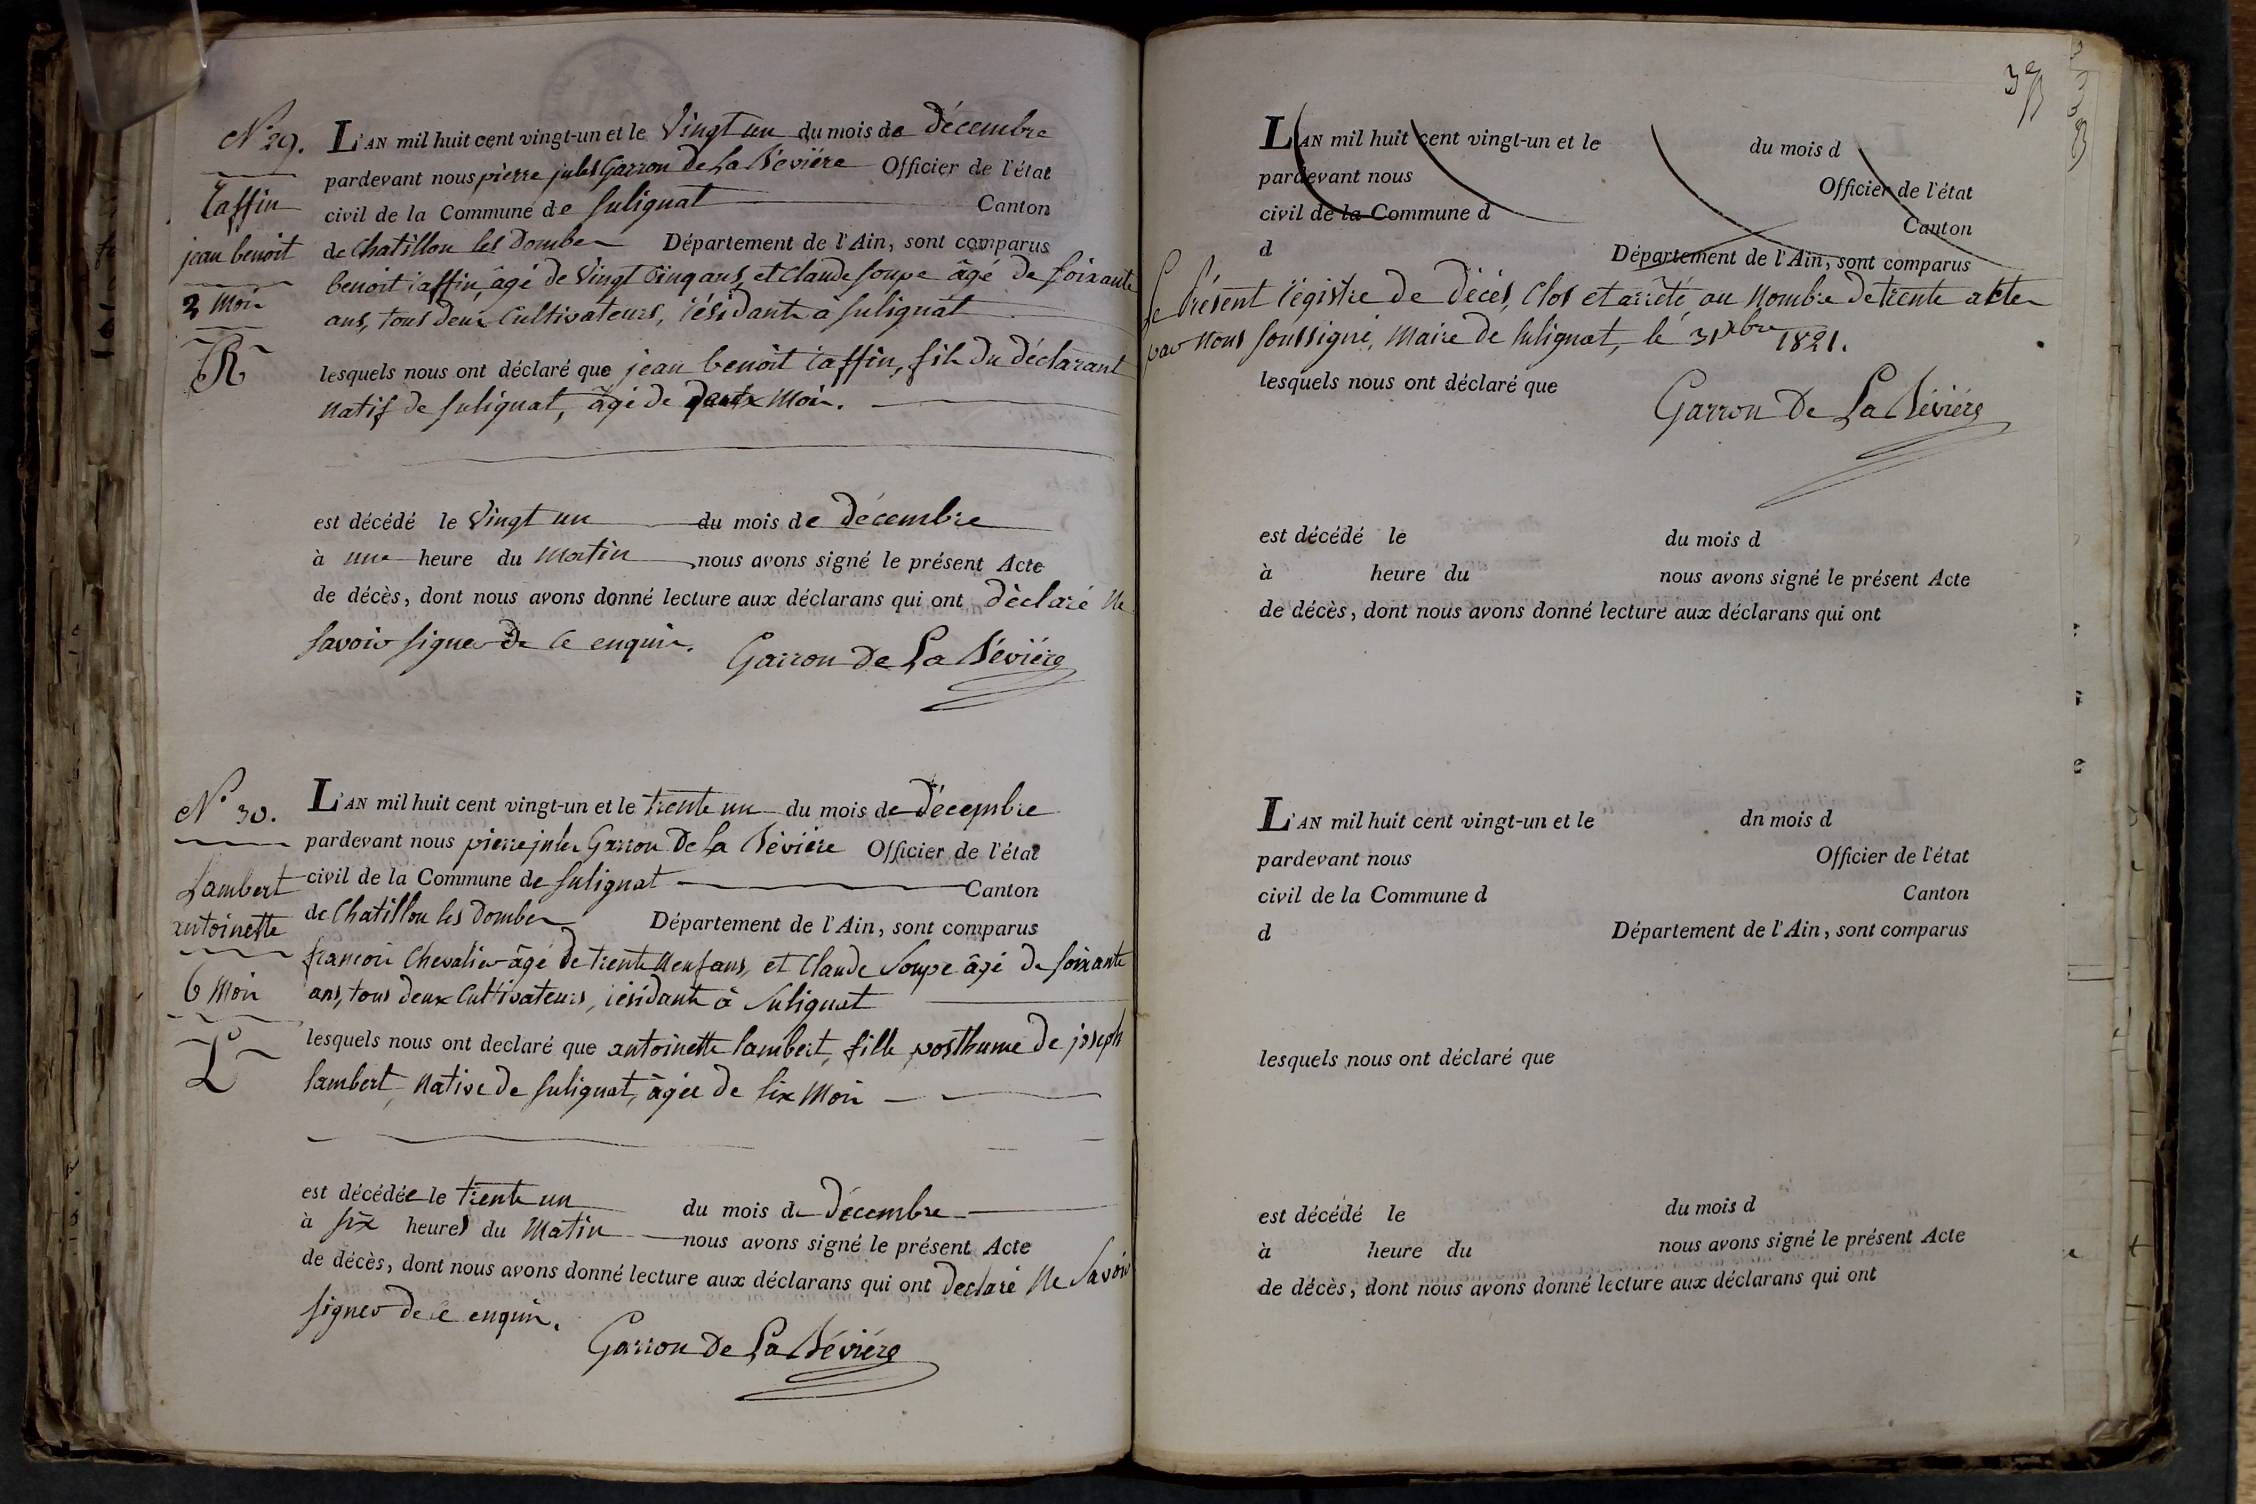 N.° 29.
L'AN mil huit cent vingt-un et le vingt un du mois de décembre
pardevant nous pierre jules Garron De La Bévière Officier de l'état
civil de la Commune de Sulignat Canton
de Chatillon les Dombes Département de l'Ain, sont comparus
benoit raffin, âgé de vingt cinq ans, et Claude Soupe âgé de soixante
ans, tous deux Cultivateurs, résidants à Sulignat
lesquels nous ont déclaré que jean benoit raffin, fils du déclarant
natif de Sulignat, âgé de mois.
est décédé le vingt un du mois de décembre
à une heure du matin nous avons signé le présent Acte
de décès, dont nous avons donné lecture aux déclarans qui ont déclaré ne
savoir signer de ce enquis. Garron De La Bévière
Raffin
jean benoit
2 mois
R
N.° 30.
L'AN mil huit cent vingt-un et le trente un du mois de décembre
pardevant nous pierre jules Garron De La Bévière Officier de l'état
civil de la Commune de Sulignat Canton
de Chatillon les Dombes Département de l'Ain, sont comparus
francois Chevalier âgé de trente neuf ans, et Claude Soupe âgé de soixante
ans, tous deux Cultivateurs, résidants à Sulignat
lesquels nous ont declaré que antoinette lambert, fille posthume de joseph
lambert, native de Sulignat, âgée de six mois
est décédée le trente un du mois de décembre
à six heures du matin nous avons signé le présent Acte
de décès, dont nous avons donné lecture aux déclarans qui ont declaré ne savoir
signer de ce enquis.
Garron De La Bévière
Lambert
antoinette
6 mois
L
37
L'AN mil huit cent vingt-un et le du mois d
pardevant nous Officier de l'état
civil de la Commune d Canton
d Département de l'Ain, sont comparus
Le Présent régistre de décès, clos et arrêté au nombre de trente actes
par nous soussigné, Maire de Sulignat, le 31 Xbre 1821.
lesquels nous ont déclaré que
Garron De La Bévière
est décédé le du mois d
à heure du nous avons signé le présent Acte
de décès, dont nous avons donné lecture aux déclarans qui ont
L'AN mil huit cent vingt-un et le dn mois d
pardevant nous Officier de l'état
civil de la Commune d Canton
d Département de l'Ain, sont comparus
lesquels nous ont déclaré que
est décédé le du mois d
à heure du nous avons signé le présent Acte
de décès, dont nous avons donné lecture aux déclarans qui ont